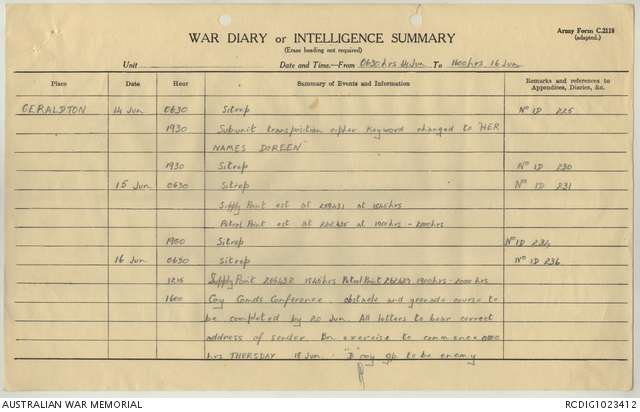 Army Form C.2118
(adapted.)
WAR DIARY or INTELLIGENCE SUMMARY
(Erase heading not required)
Unit Date and Time.—From 0630hrs 14 Jun To 1600hrs, 16 Jun
Place Date Hour Summary of Events and Information Remarks and references to Appendices, Diaries, &c.
GERALDTON 14 Jun 0630 Sitrep No ID 225
1930 Subunit transposition cipher Keyword changed to "HER
NAMES DOREEN"
1930 Sitrep No ID 230
15 Jun 0630 Sitrep No ID 231
Supply Point est at at 1545hrs
Petrol Point est at at 1900hrs - 2000hrs
1900 Sitrep No ID 234
16 Jun 0630 Sitrep No ID 236
1215 Supply Point 1545hrs Petrol Point 1900hrs - 2000hrs
1600 Coy Comds Conference. obstacle and grenade course to
be completed by 20 Jun. All letters to bear correct
address of sender. Bn exercise to commence
hrs THURSDAY 18 Jun. "B" coy gp to be enemy
AUSTRALIAN WAR MEMORIAL RCDIG1023412